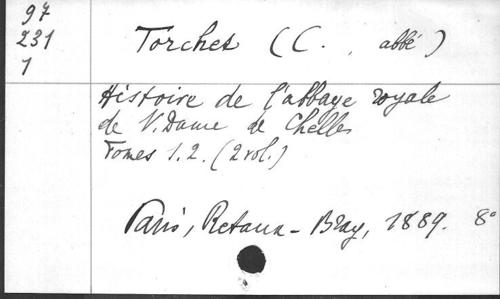 97
231
1
Torchet (C. , abbé)
Histoire de l'abbaye royale
de N. Dame de Chelles
Tomes 1. 2. (2 vol.)
Paris, Retaux-Bray, 1889. 8°